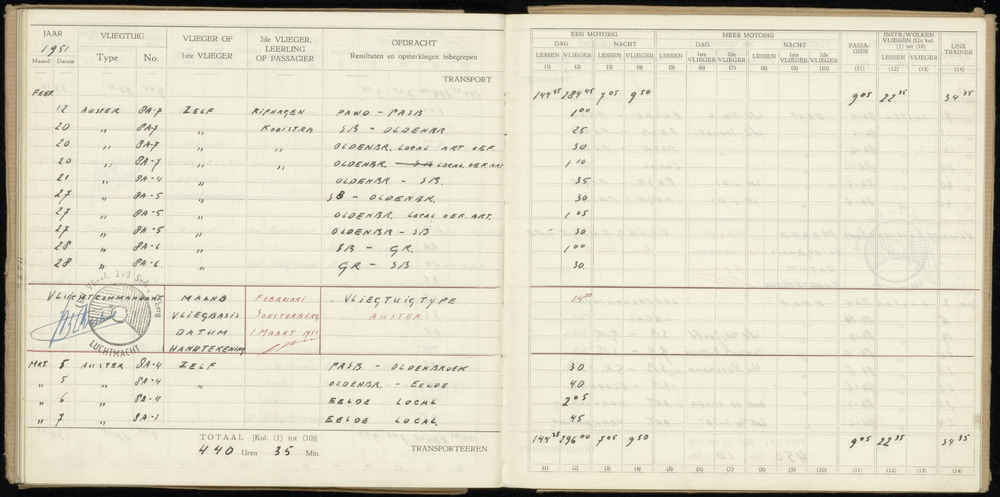 JAAR VLIEGTUIG VLIEGER OF 1ste VLIEGER 2de VLIEGER, LEERLING OF PASSAGIER OPDRACHT
1951 Resultaten en opmerkingen inbegrepen
Maand Datum Type No.
EEN MOTORIG MEER MOTORIG PASSAGIER INSTR./WOLKEN VLIEGEN [Uit kol. (1) tot (10)] LINK TRAINER
DAG NACHT DAG NACHT
LESSEN VLIEGER LESSEN VLIEGER LESSEN 1ste VLIEGER 2de VLIEGER LESSEN 1ste VLIEGER 2de VLIEGER LESSEN VLIEGER
(1) (2) (3) (4) (5) (6) (7) (8) (9) (10) (11) (12) (13) (14)
TRANSPORT
FEBR. 7 05 9 50 9 05 22 35 34 35
12 AUSTER 8A-7 ZELF RIPHAGEN PAWO - PASB 1 00
20 " 8A-7 " KOOISTRA SB - OLDENBR 25
20 " 8A-7 " " OLDENBR. LOCAL ART OEF. 50
20 " 8A-7 " " OLDENBR. LOCAL OEF ART 1 10
21 " 8A-4 " OLDENBR - SB. 35
27 " 8A-5 " SB - OLDENBR. 30
27 " 8A-5 " OLDENBR. LOCAL OEF. ART. 1 05
27 " 8A-5 " OLDENBR - SB 30
28 " 8A-6 " SB - GR. 1 00
28 " 8A-6 " GR - SB 30
VLUCHTCOMMANDANT MAAND FEBRUARI VLIEGTUIGTYPE
VLIEGBASIS SOESTERBERG AUSTER
DATUM 1 MAART 1951
HANDTEKENING
LUCHTMACHT
MRT. 5 AUSTER 8A-4 ZELF PASB - OLDENBROEK 30
" 5 " 8A-4 " OLDENBR. - EELDE 40
" 6 " 8A-4 EELDE LOCAL 2 05
" 7 " 8A-1 EELDE LOCAL 45
TOTAAL [Kol. (1) tot (10)]
440 Uren 35 Min. TRANSPORTEEREN
296 00 7 05 9 50 9 05 22 35 34 35
(1) (2) (3) (4) (5) (6) (7) (8) (9) (10) (11) (12) (13) (14)